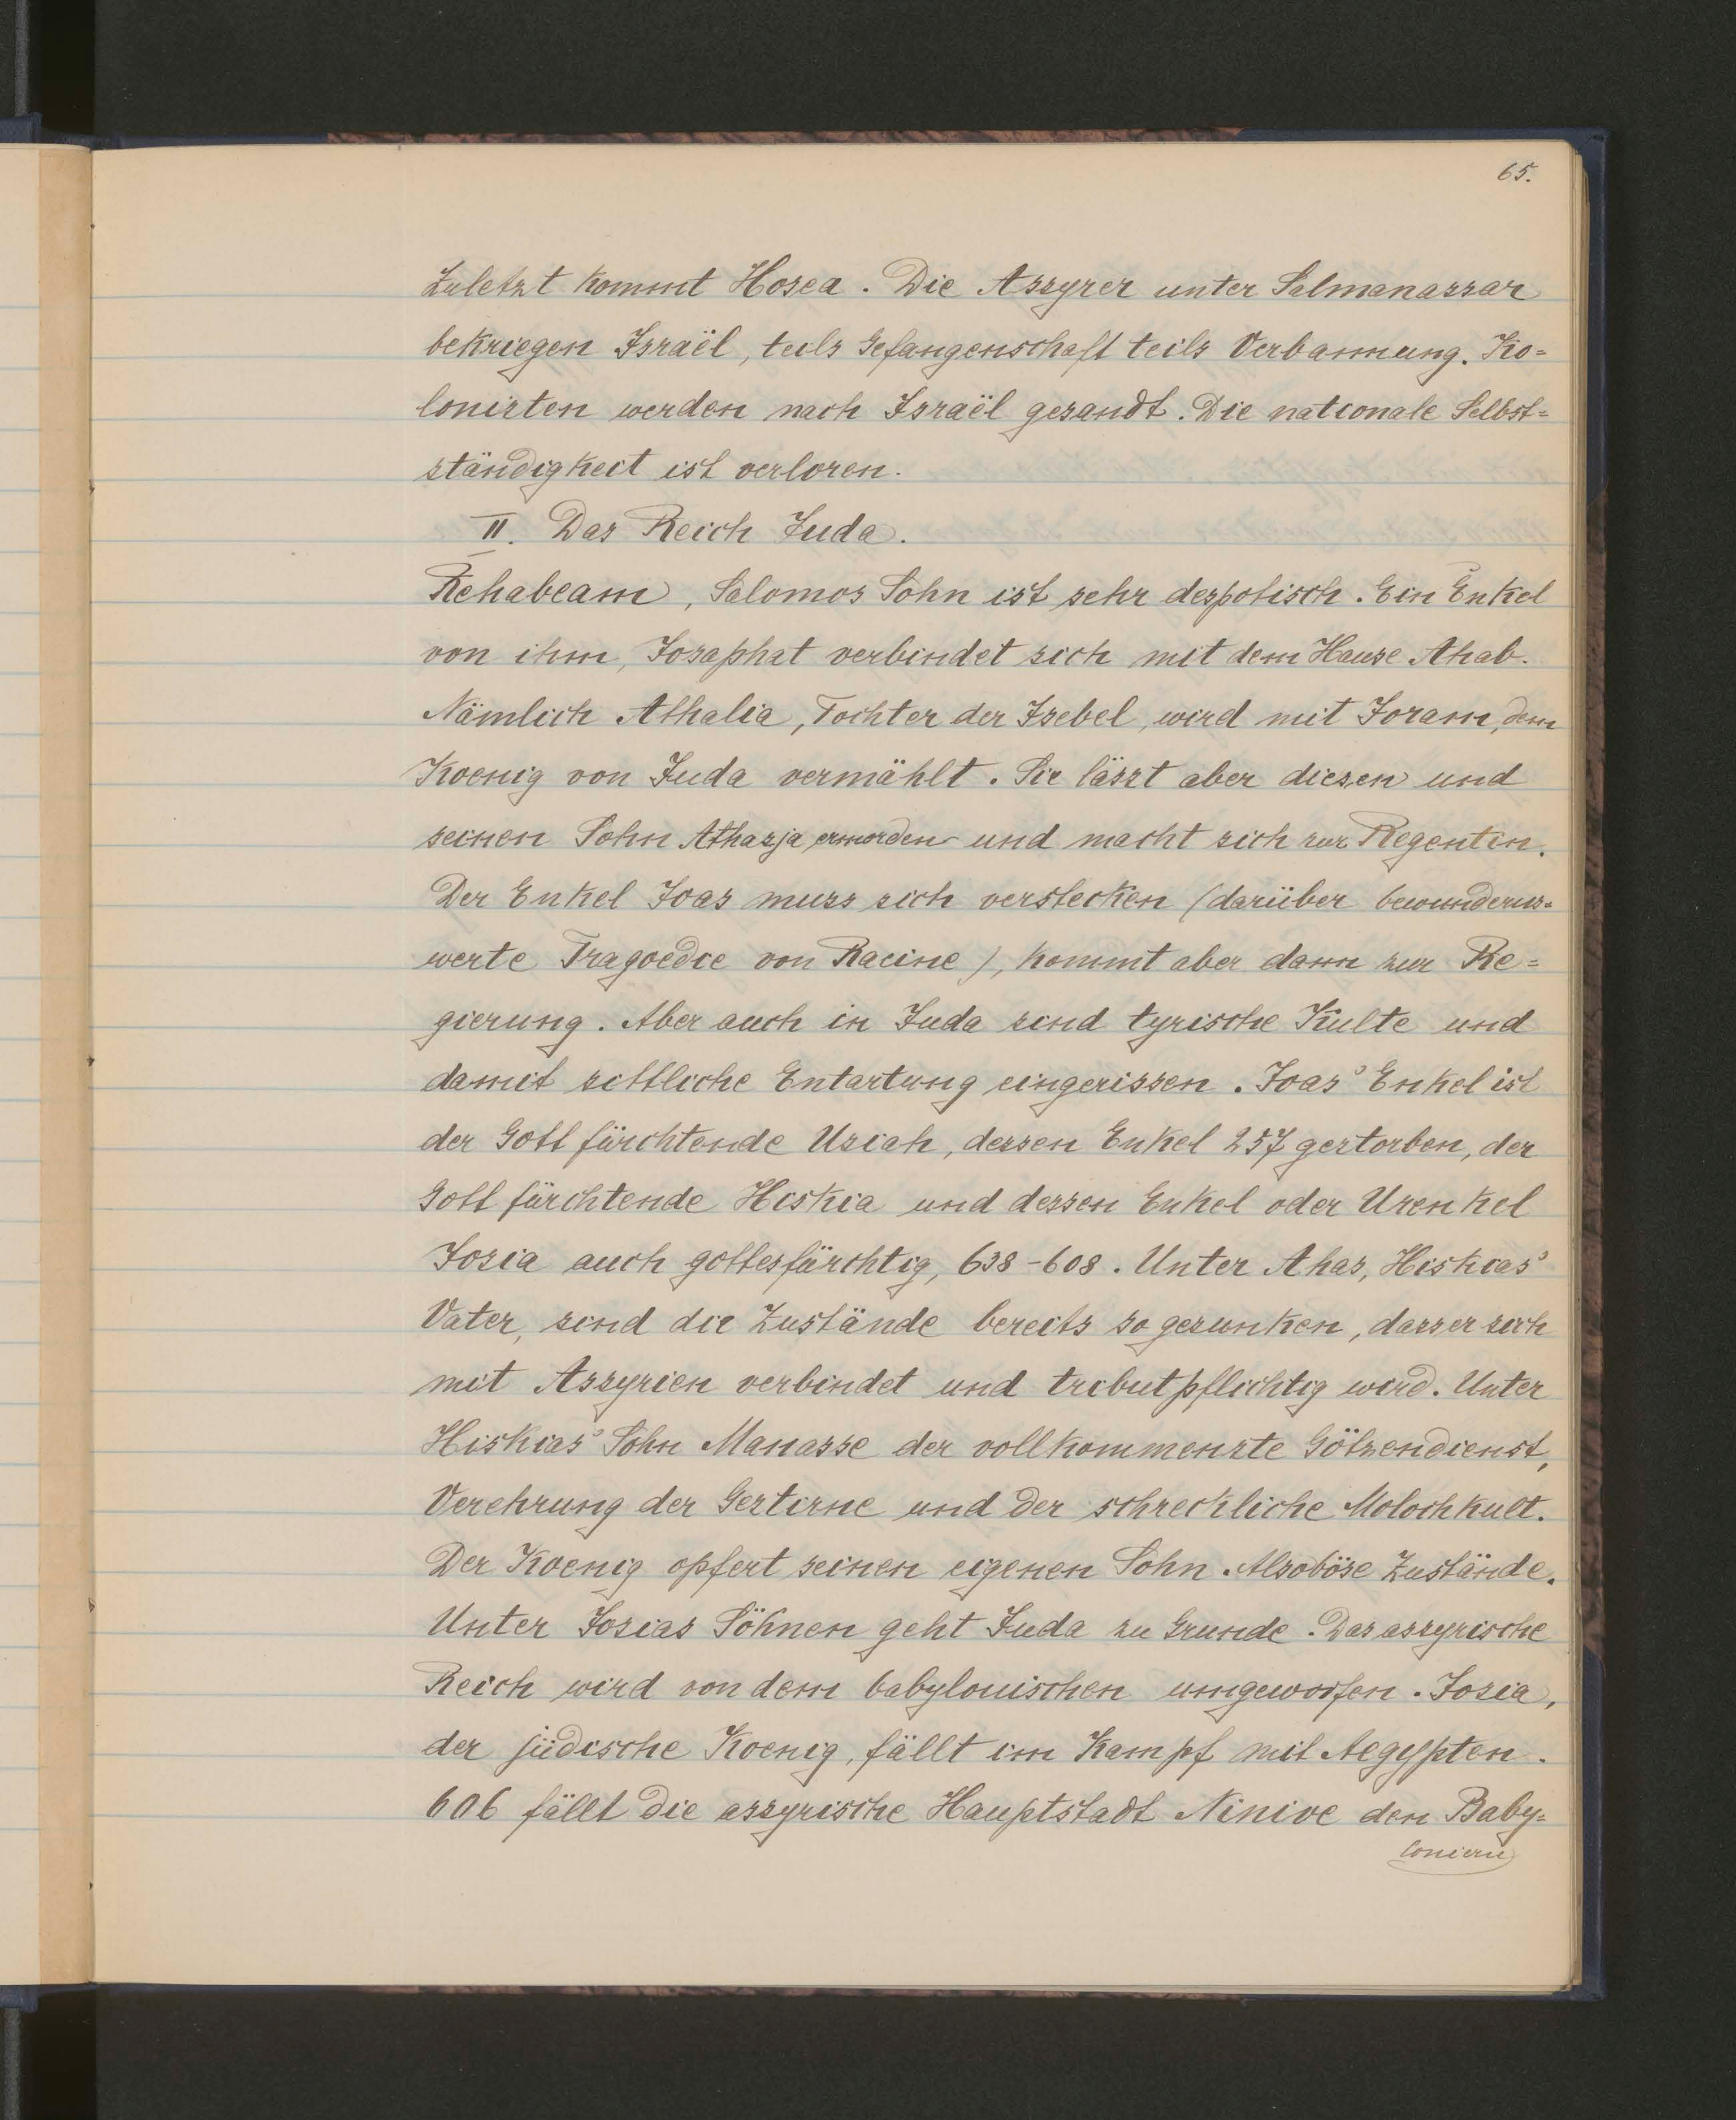 65.
Zuletzt kommt Hosea. Die Assyrer unter Salmanassar
bekriegen Israël, teils Gefangenschaft teils Verbannung. Ko=
lonisten werden nach Israël gesandt. Die nationale Selbst=
ständigkeit ist verloren.
II. Das Reich Juda.
Rehabeam, Salomos Sohn ist sehr despotisch. Ein Enkel
von ihm, Josaphat verbindet sich mit dem Hause Ahab.
Nämlich Athalia, Tochter der Isebel, wird mit Joram, dem
Koenig von Juda vermählt. Sie lässt aber diesen und
seinen Sohn Athasja ermorden und macht sich zur Regentin.
Der Enkel Joas muss sich verstecken (darüber bewunderns=
werte Tragoedie von Racine), kommt aber dann zur Re=
gierung. Aber auch in Juda sind tyrische Kulte und
damit sittliche Entartung eingerissen. Joas' Enkel ist
der Gott fürchtende Usiah, dessen Enkel 257 gestorben, der
Gott fürchtende Hiskia und dessen Enkel oder Urenkel
Josia auch gottesfürchtig, 638-608. Unter Ahas, Hiskias'
Vater, sind die Zustände bereits so gesunken, dass er sich
mit Assyrien verbindet und tributpflichtig wird. Unter
Hiskias' Sohn Manasse der vollkommenste Götzendienst,
Verehrung der Gestirne und der schreckliche Molochkult.
Der Koenig opfert seinen eigenen Sohn. Also böse Zustände.
Unter Josias Söhnen geht Juda zu Grunde. Das assyrische
Reich wird von dem babylonischen umgeworfen. Josia,
der jüdische Koenig, fällt im Kampf mit Aegypten.
606 fällt die assyrische Hauptstadt Ninive den Baby=
loniern